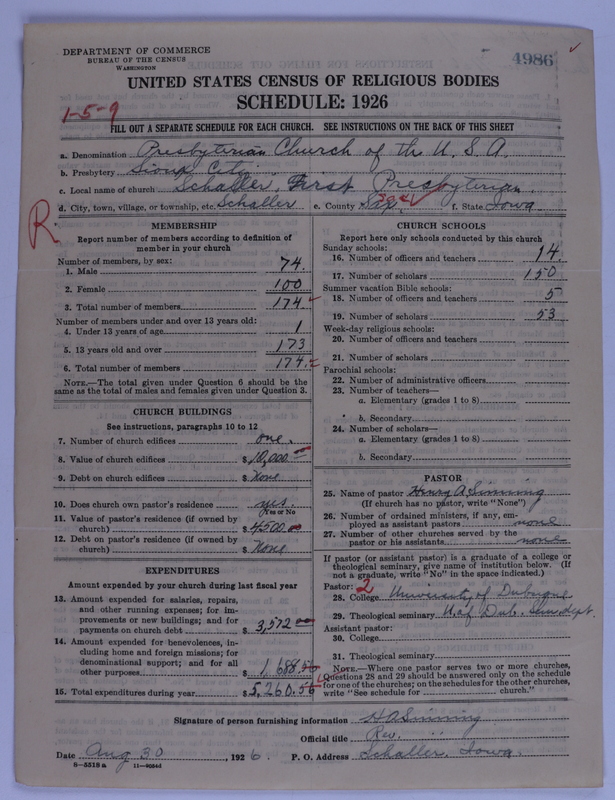 DEPARTMENT OF COMMERCE
BUREAU OF THE CENSUS
WASHINGTON
4986
UNITED STATES CENSUS OF RELIGIOUS BODIES
SCHEDULE: 1926
1-5-9
FILL OUT A SEPARATE SCHEDULE FOR EACH CHURCH. SEE INSTRUCTIONS ON THE BACK OF THIS SHEET
a. Denomination Presbyterian Church of the U.S.A.
b. Presbytery Sioux City
c. Local name of church Schaller, First Presbyterian
d. City, town, village, or township, etc. Schaller e. County Sac f. State Iowa
R
MEMBERSHIP
Report number of members according to definition of
member in your church
Number of members, by sex:
1. Male 74
2. Female 100
3. Total number of members 174
Number of members under and over 13 years old:
4. Under 13 years of age 1
5. 13 years old and over 173
6. Total number of members 174
NOTE.—The total given under Question 6 should be the
same as the total of males and females given under Question 3.
CHURCH BUILDINGS
See instructions, paragraphs 10 to 12
7. Number of church edifices one.
8. Value of church edifices $10,000
9. Debt on church edifices $None
10. Does church own pastor's residence yes.
(Yes or No)
11. Value of pastor's residence (if owned by
church) $4500
12. Debt on pastor's residence (if owned by
church) $None
EXPENDITURES
Amount expended by your church during last fiscal year
13. Amount expended for salaries, repairs,
and other running expenses; for im-
provements or new buildings; and for
payments on church debt $3,572
14. Amount expended for benevolences, in-
cluding home and foreign missions; for
denominational support; and for all
other purposes $1,688.56
15. Total expenditures during year $5,260.56
CHURCH SCHOOLS
Report here only schools conducted by this church
Sunday schools:
16. Number of officers and teachers 14
17. Number of scholars 150
Summer vacation Bible schools:
18. Number of officers and teachers 5
19. Number of scholars 53
Week-day religious schools:
20. Number of officers and teachers
21. Number of scholars
Parochial schools:
22. Number of administrative officers
23. Number of teachers—
a. Elementary (grades 1 to 8)
b. Secondary
24. Number of scholars—
a. Elementary (grades 1 to 8)
b. Secondary
PASTOR
25. Name of pastor Henry A Sinning
(If church has no pastor, write "None")
26. Number of ordained ministers, if any, em-
ployed as assistant pastors none
27. Number of other churches served by the
pastor or his assistants none
If pastor (or assistant pastor) is a graduate of a college or
theological seminary, give name of institution below. (If
not a graduate, write "No" in the space indicated.)
Pastor: 2
28. College University of Dubuque
29. Theological seminary U of Dub. Sem dept.
Assistant pastor:
30. College
31. Theological seminary
NOTE.—Where one pastor serves two or more churches,
Questions 28 and 29 should be answered only on the schedule
for one of the churches; on the schedules for the other churches,
write "See schedule for church."
Signature of person furnishing information H A Sinning
Official title Rev.
Date Aug 30, 1926. P. O. Address Schaller, Iowa.
8—5519 a